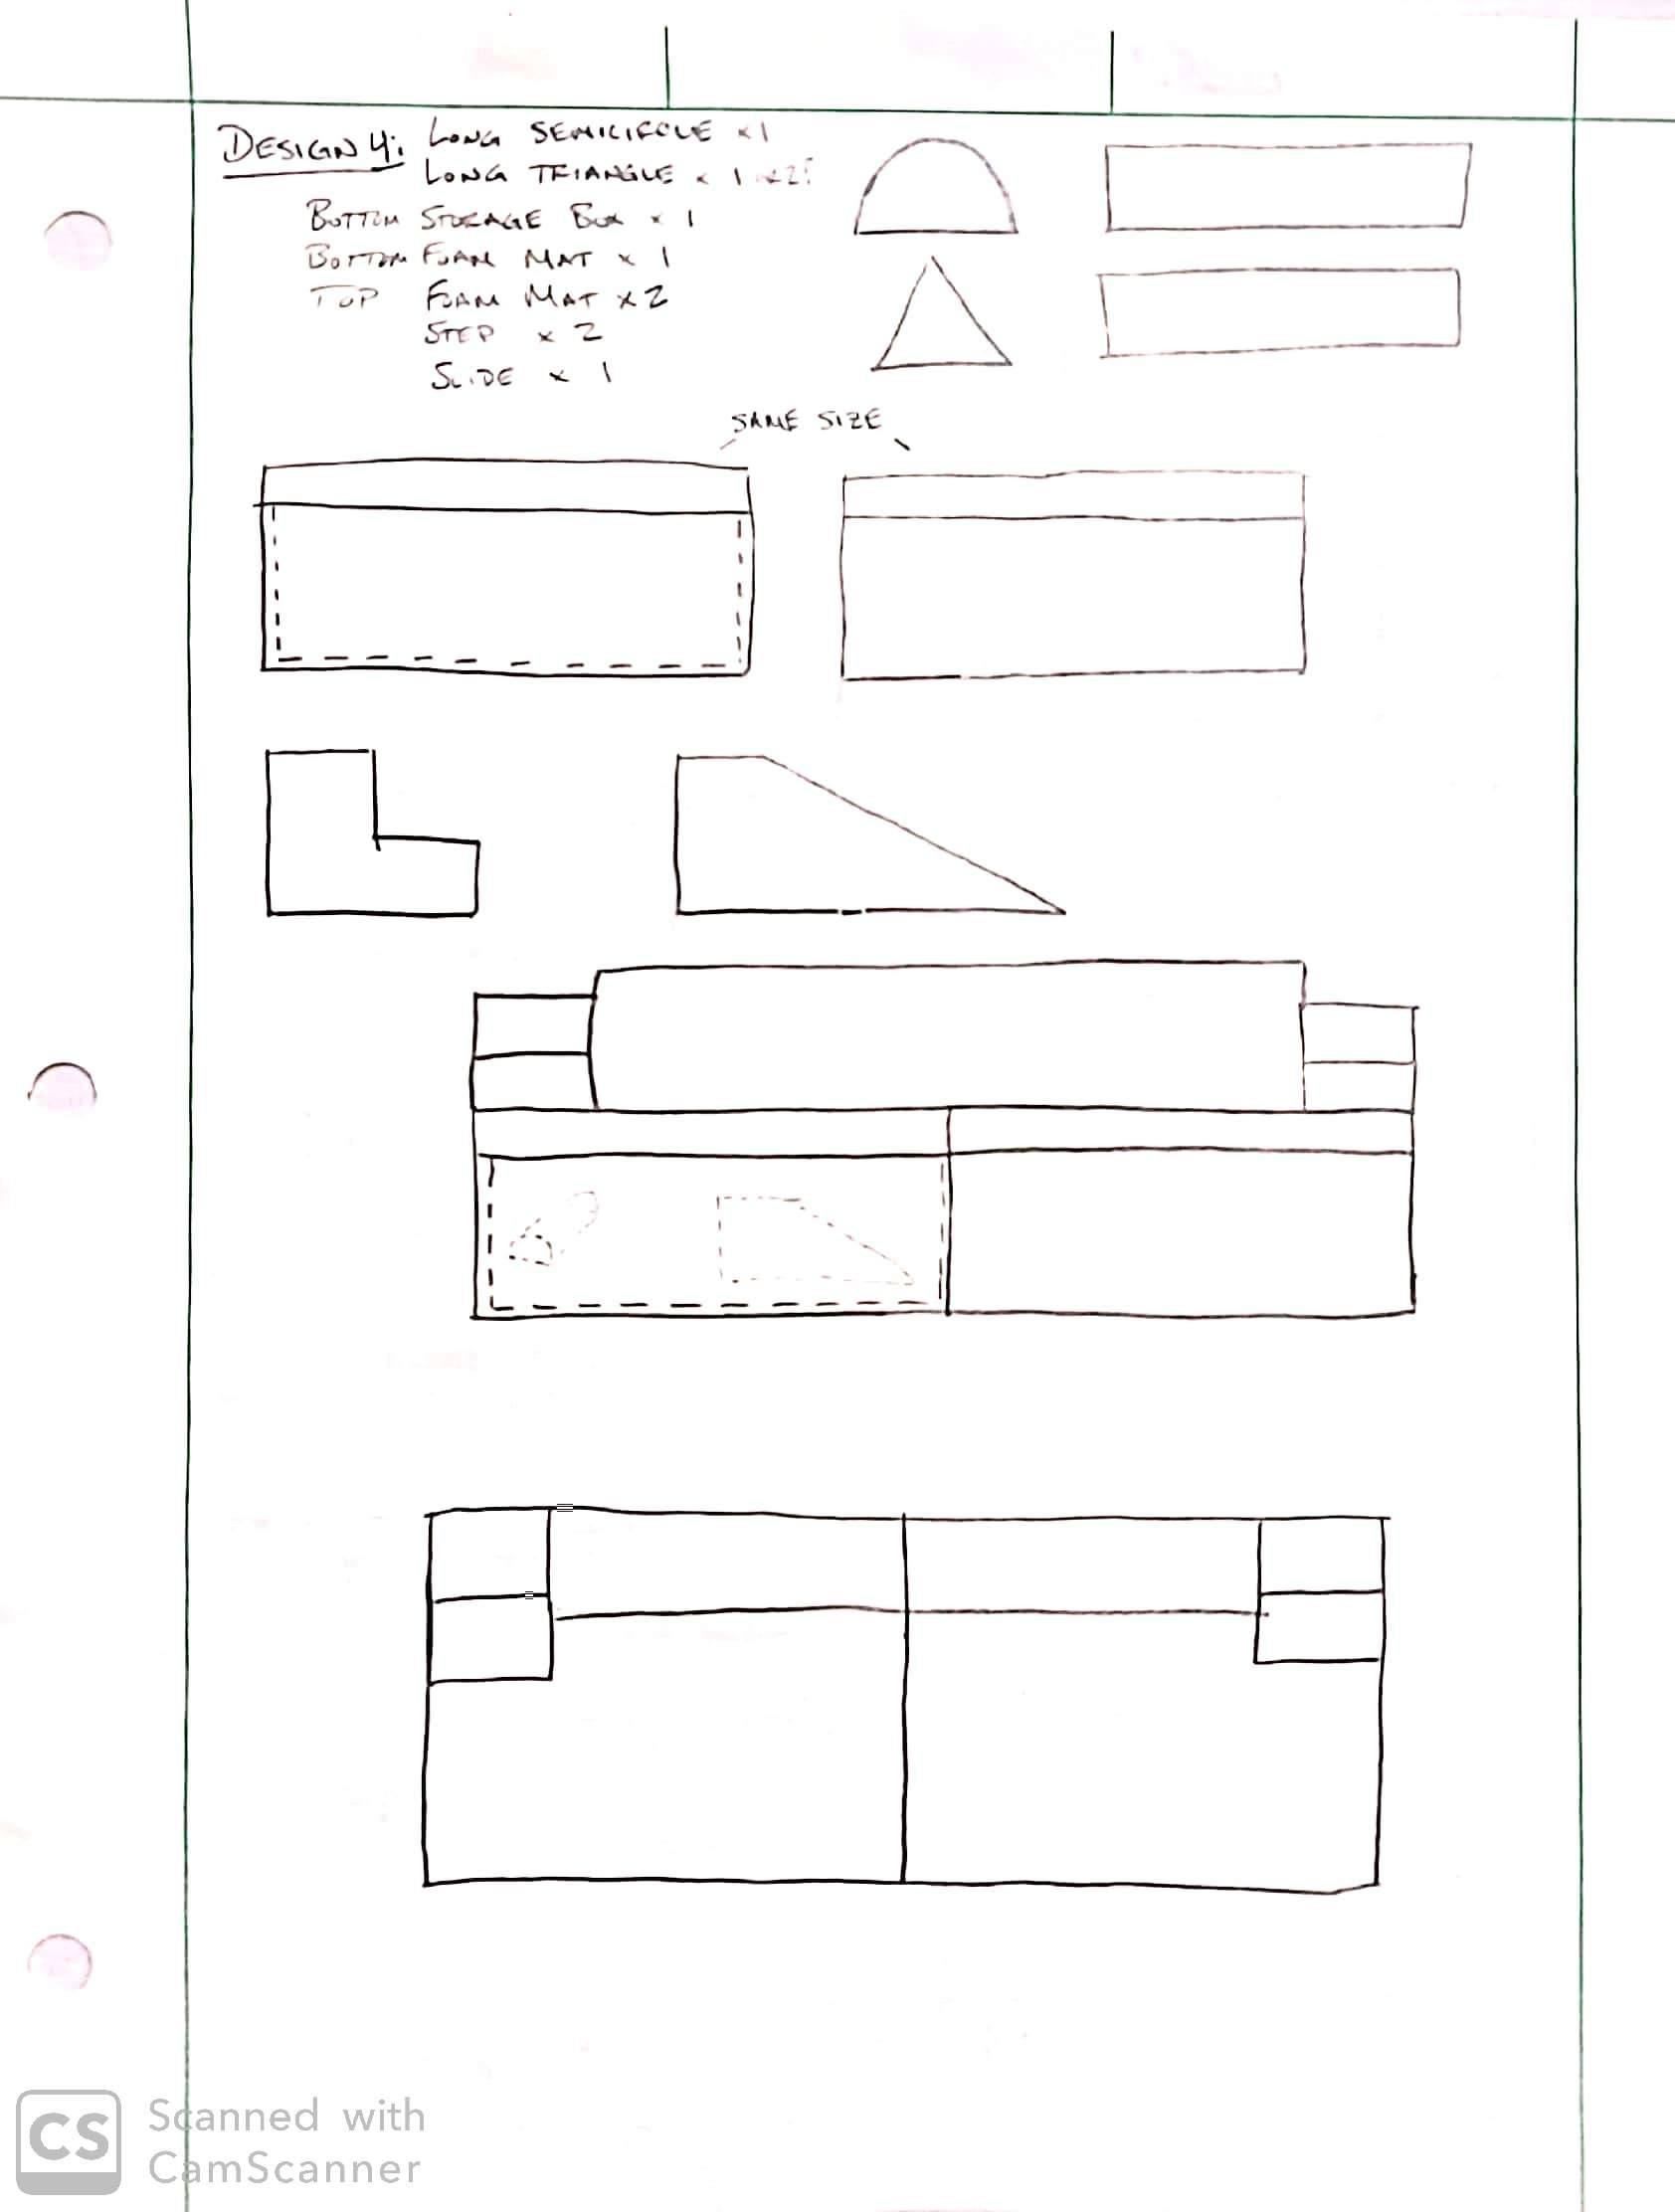 DESIGN 4: LONG SEMICIRCLE x 1
LONG TRIANGLE x 1 x2?
BOTTOM STORAGE BOX x 1
BOTTOM FOAM MAT x 1
TOP FOAM MAT x 2
STEP x 2
SLIDE x 1
SAME SIZE
CS Scanned with
CamScanner